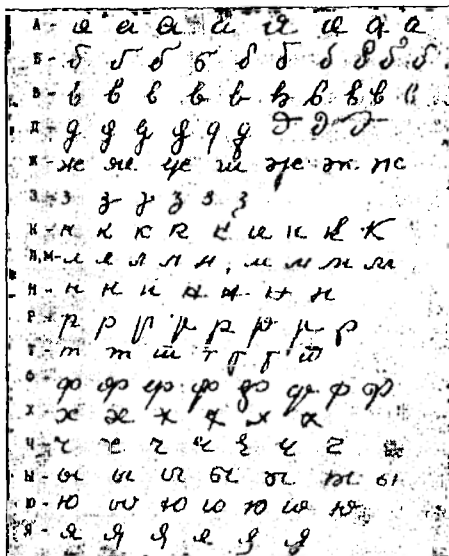 А - а а а а а а а а
Б - б б б б б б б б б б
В - в в в в в в в в в в
Д - д д д д д д д д д
Ж - ж ж ж ж ж ж ж
З - з з з з з з
К - к к к к к к к к к
Л,М - л л л л л м м м м
Н - н н н н н н н
Р - р р р р р р р р
Т - т т т т т т т
Ф - ф ф ф ф ф ф ф ф
Х - х х х х х х
Ч - ч ч ч ч ч ч ч
Ы - ы ы ы ы ы ы ы
Ю - ю ю ю ю ю ю ю
Я - я я я я я я